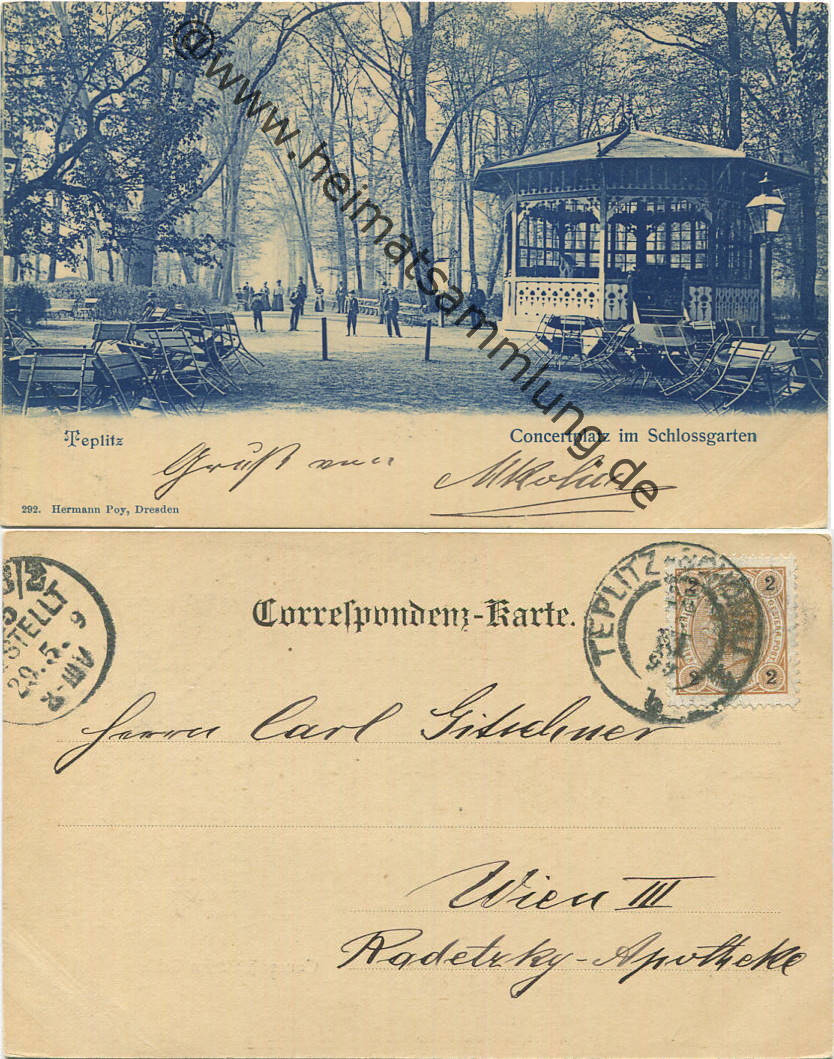 @www.heimatsammlung.de
Teplitz
Concertplatz im Schlossgarten
Gruß von
292. Hermann Poy, Dresden
Correspondenz-Karte.
3/2
BESTELLT
29.5.9
TEPLITZ
2 2
2 2
Herrn Carl Gitschner
Wien III
Radetzky-Apotheke